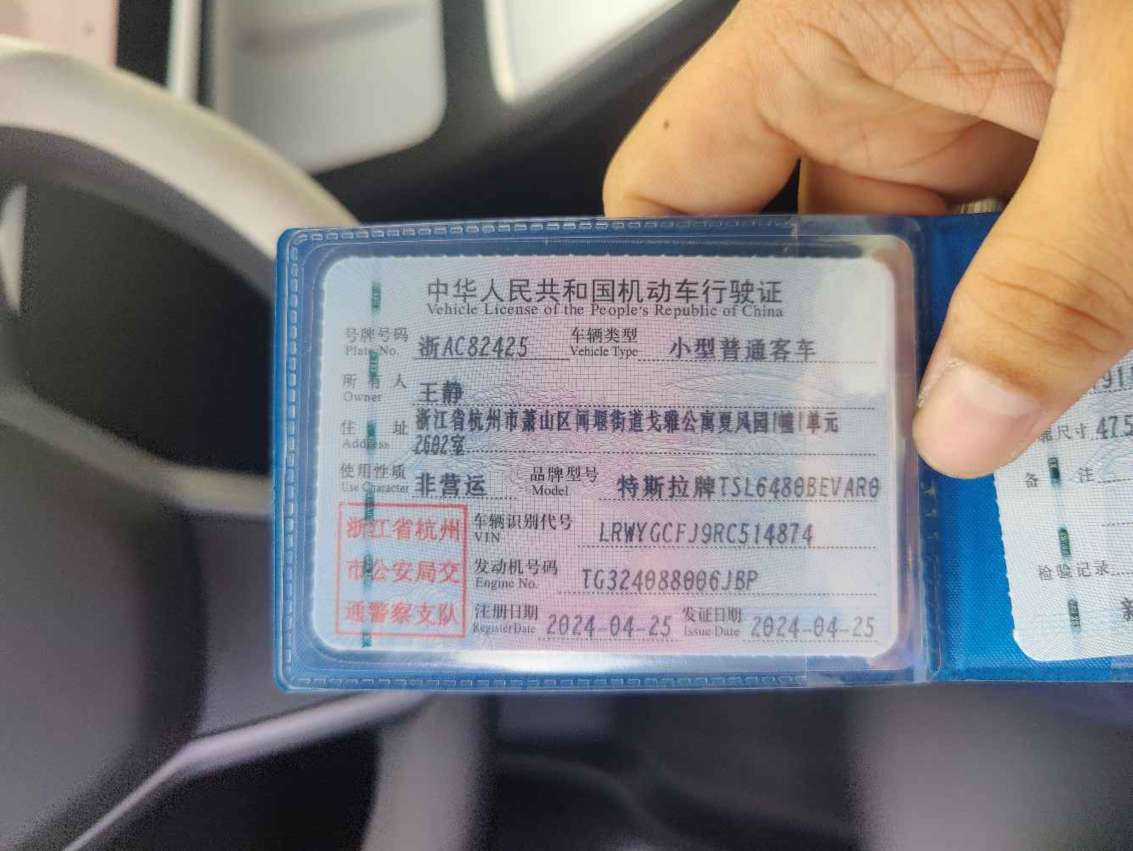 中华人民共和国机动车行驶证
Vehicle License of the People's Republic of China
号牌号码 浙AC82425 车辆类型 小型普通客车
Plate No. Vehicle Type
所有人 王静
Owner
住址 浙江省杭州市萧山区闻堰街道戈雅公寓夏风园1幢1单元
Address 2602室
使用性质 非营运 品牌型号 特斯拉牌TSL6480BEVAR0
Use Character Model
浙江省杭州
市公安局交
通警察支队
车辆识别代号 LRWYGCFJ9RC514874
VIN
发动机号码 TG324088006JBP
Engine No.
注册日期 2024-04-25 发证日期 2024-04-25
Register Date Issue Date
尺寸 475
备注
检验记录